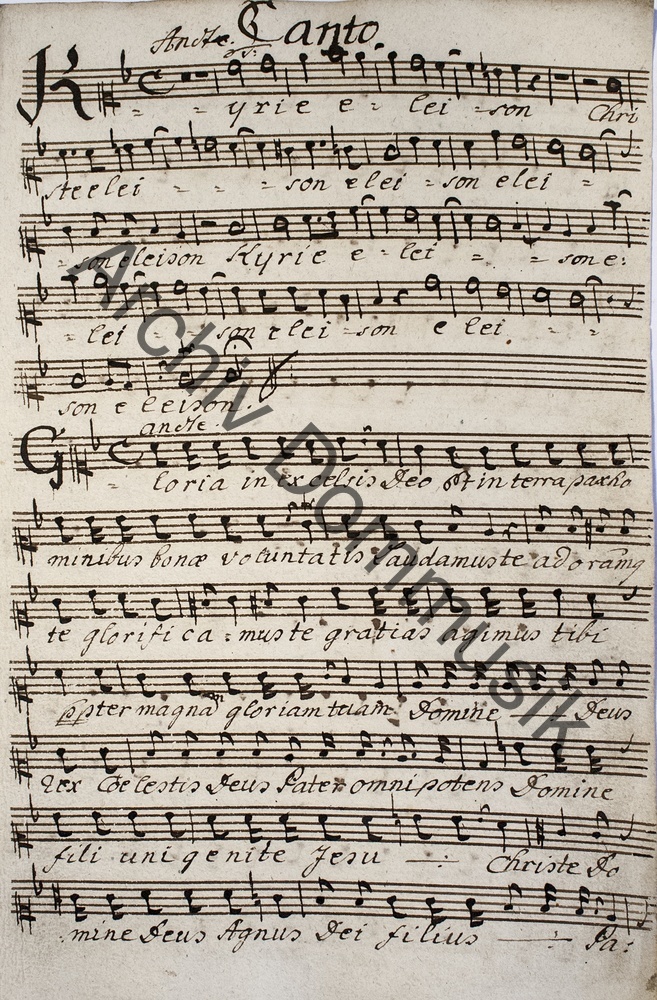 Canto
Andte.
Kyrie e - lei - son Chri
ste elei - - - son elei - son elei -
- son eleison Kyrie e - lei - - son e:
- lei - - son elei - son e lei - -
son e leison.
andte.
Gloria in excelsis Deo Et in terra pax ho
minibus bonæ voluntatis Laudamus te adoramq
te glorifica - mus te gratias agimus tibi
ppter magna gloriam tuam Domine —:— Deus
Rex Coelestis Deus Pater omnipotens Domine
fili unigenite Jesu —:— Christe Do
mine Deus Agnus Dei filius —:— Pa:
Archiv Dommusik